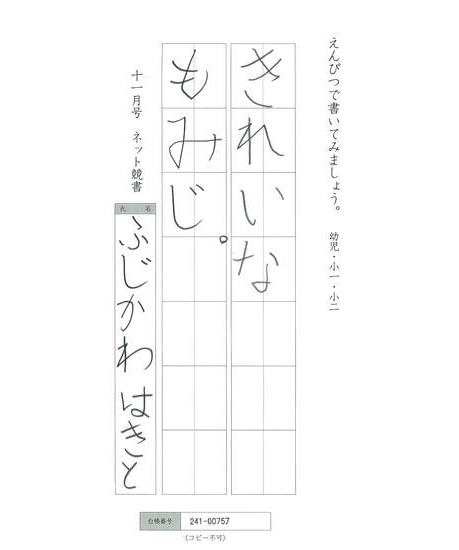 えんぴつで書いてみましょう。　幼児・小一・小二
きれいな
もみじ。
十一月号　ネット競書
氏名
ふじかわ はきと
台帳番号 241-00757
(コピー不可)